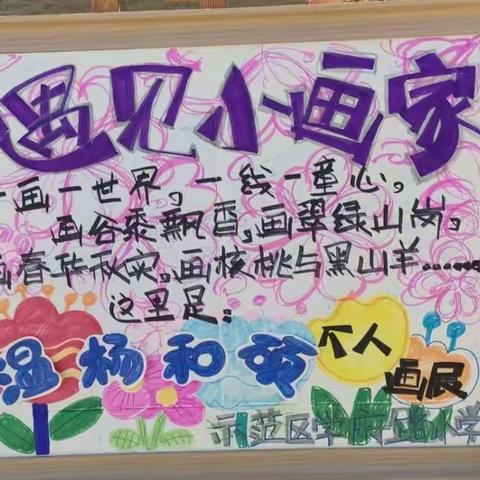 遇见小画家
一画一世界。一线一童心。
画谷黍飘香,画翠绿山岗。
画春华秋实。画核桃与黑山羊……
这里是:
温杨和 个人
画展
示范区学府 小学